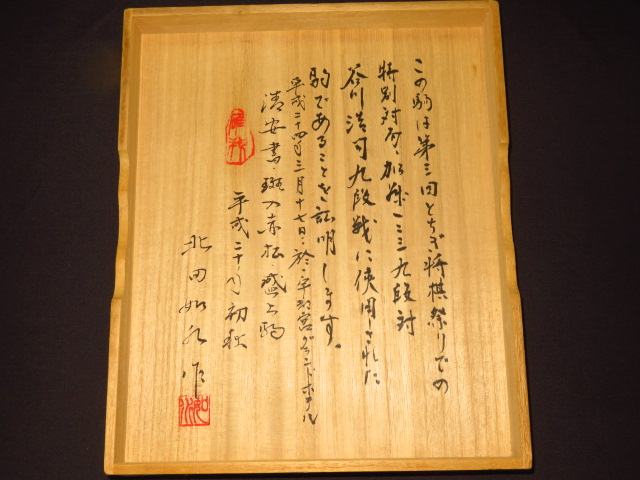 この駒は第三回とちぎ将棋祭りでの
特別対局、加藤一二三九段対
谷川浩司九段戦に使用された
駒であることを証明します。
平成二十四年三月十七日・於・宇都宮グランドホテル
清安書・斑入赤松・盛上駒
平成二十 年初秋
北田如水作